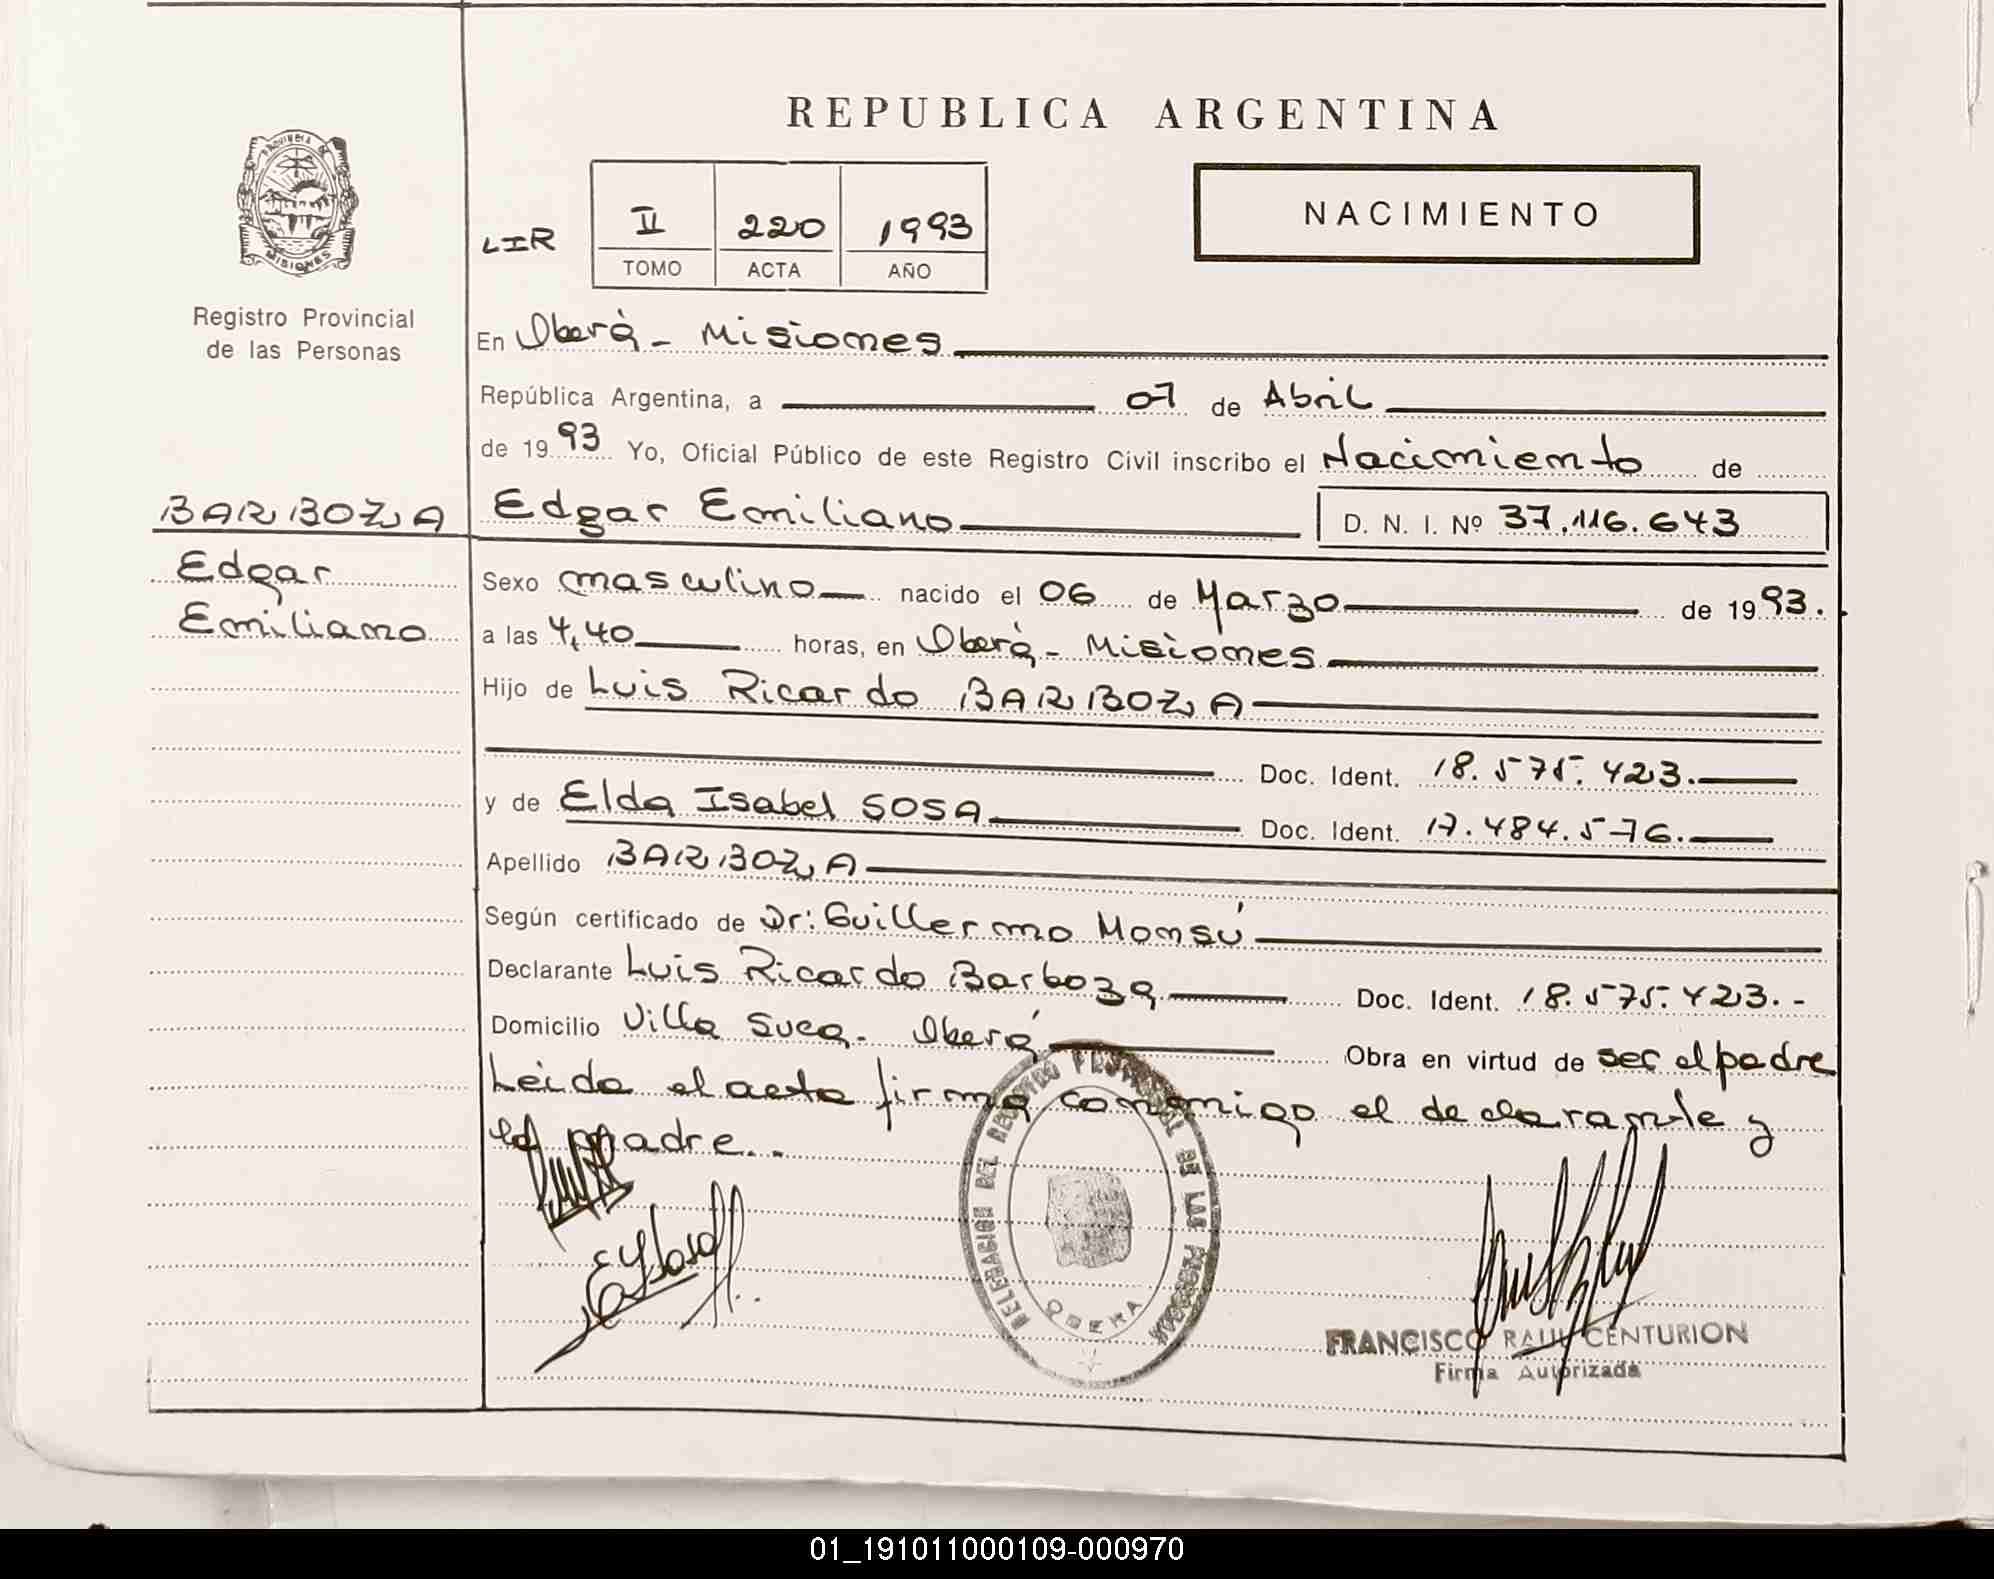 REPUBLICA ARGENTINA
PROVINCIA DE
MISIONES
Registro Provincial
de las Personas
LIR
II 220 1993
TOMO ACTA AÑO
NACIMIENTO
En Oberá - Misiones
República Argentina, a 07 de Abril
de 1993 Yo, Oficial Público de este Registro Civil inscribo el Nacimiento de
BARBOZA
Edgar
Emiliano
Edgar Emiliano D. N. I. Nº 37.116.643
Sexo masculino nacido el 06 de Marzo de 1993.
a las 4,40 horas, en Oberá - Misiones
Hijo de Luis Ricardo BARBOZA
Doc. Ident. 18.575.423.
y de Elda Isabel SOSA Doc. Ident. 17.484.576.
Apellido BARBOZA
Según certificado de Dr: Guillermo Monsú
Declarante Luis Ricardo Barboza Doc. Ident. 18.575.423.-
Domicilio Villa Sueca. Oberá Obra en virtud de ser el padre
Leida el acta firma conmigo el declarante y
la madre..
DELEGACION DEL REGISTRO PROVINCIAL DE LAS PERSONAS
OBERA
FRANCISCO RAUL CENTURION
Firma Autorizada
01_191011000109-000970